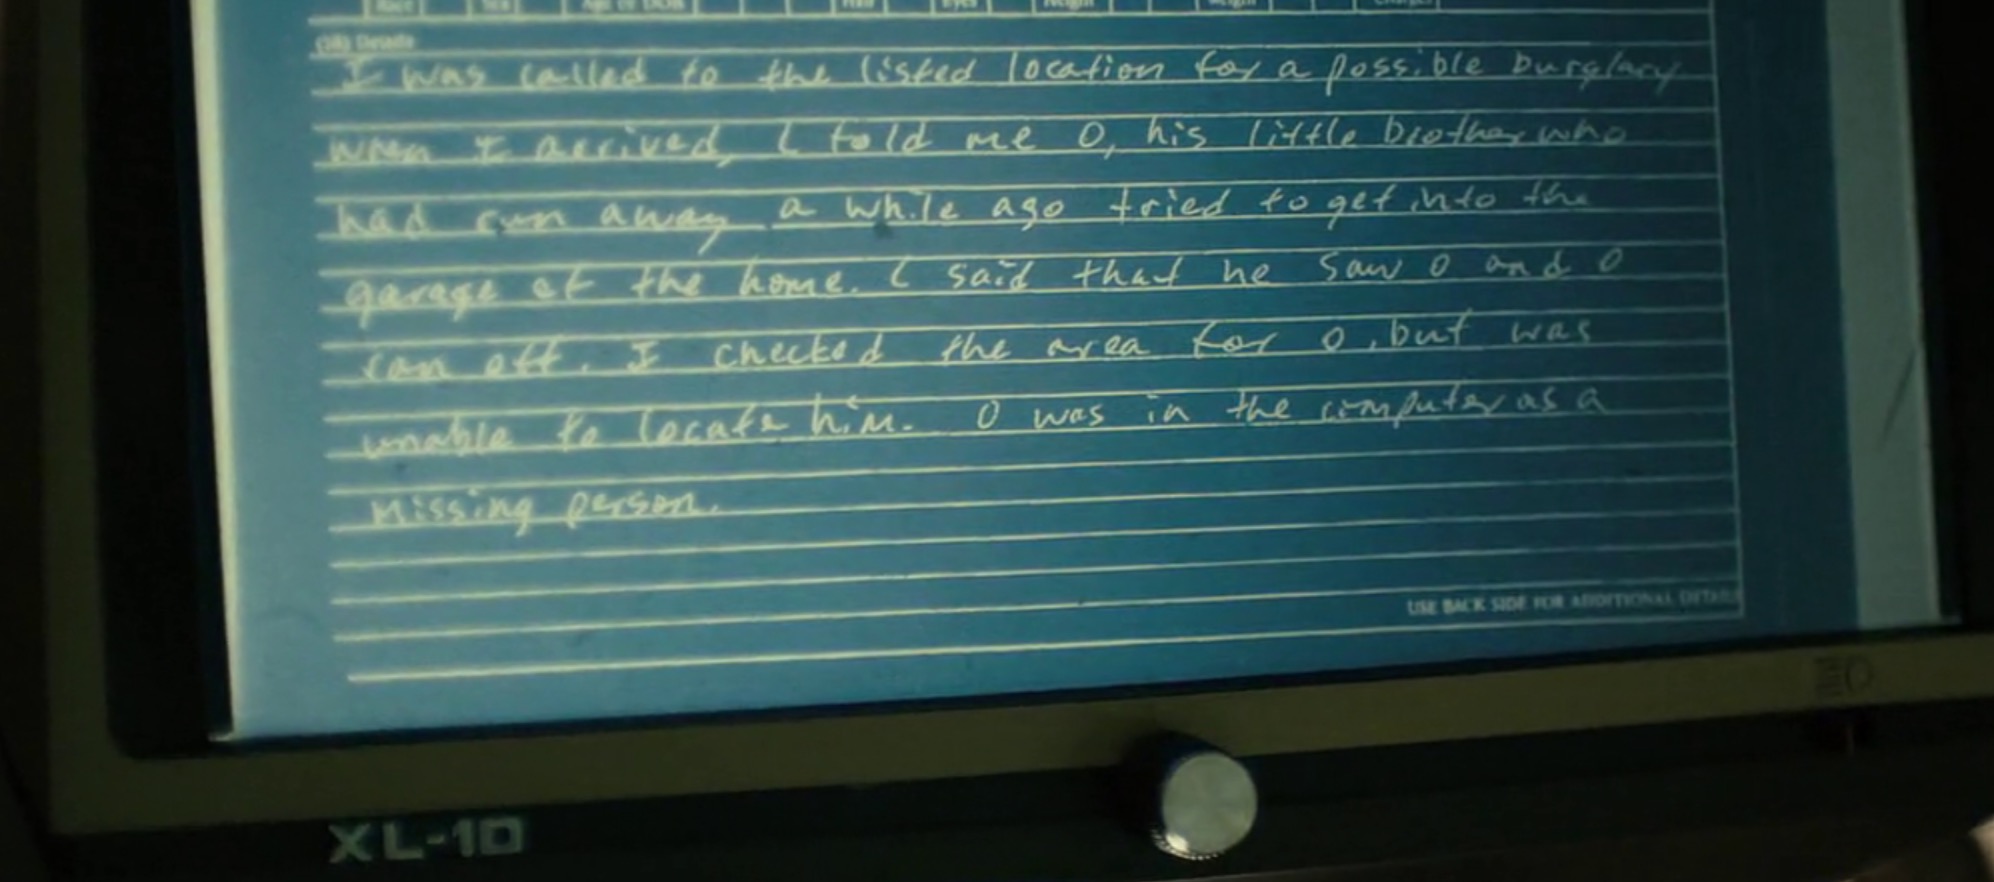 Race Sex Age or DOB Hair Eyes Height Weight
(38) Details
I was called to the listed location for a possible burglary
when I arrived, C told me O, his little brother who
had run away a while ago tried to get into the
garage at the home. C said that he saw O and O
ran off. I checked the area for O, but was
unable to locate him. O was in the computer as a
missing person.
USE BACK SIDE FOR ADDITIONAL DETAILS
XL-10